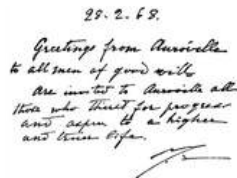 28-2-68.
Greetings from Auroville
to all men of good will.
are invited to Auroville all
those who thirst for progress
and aspire to a higher
and truer life.